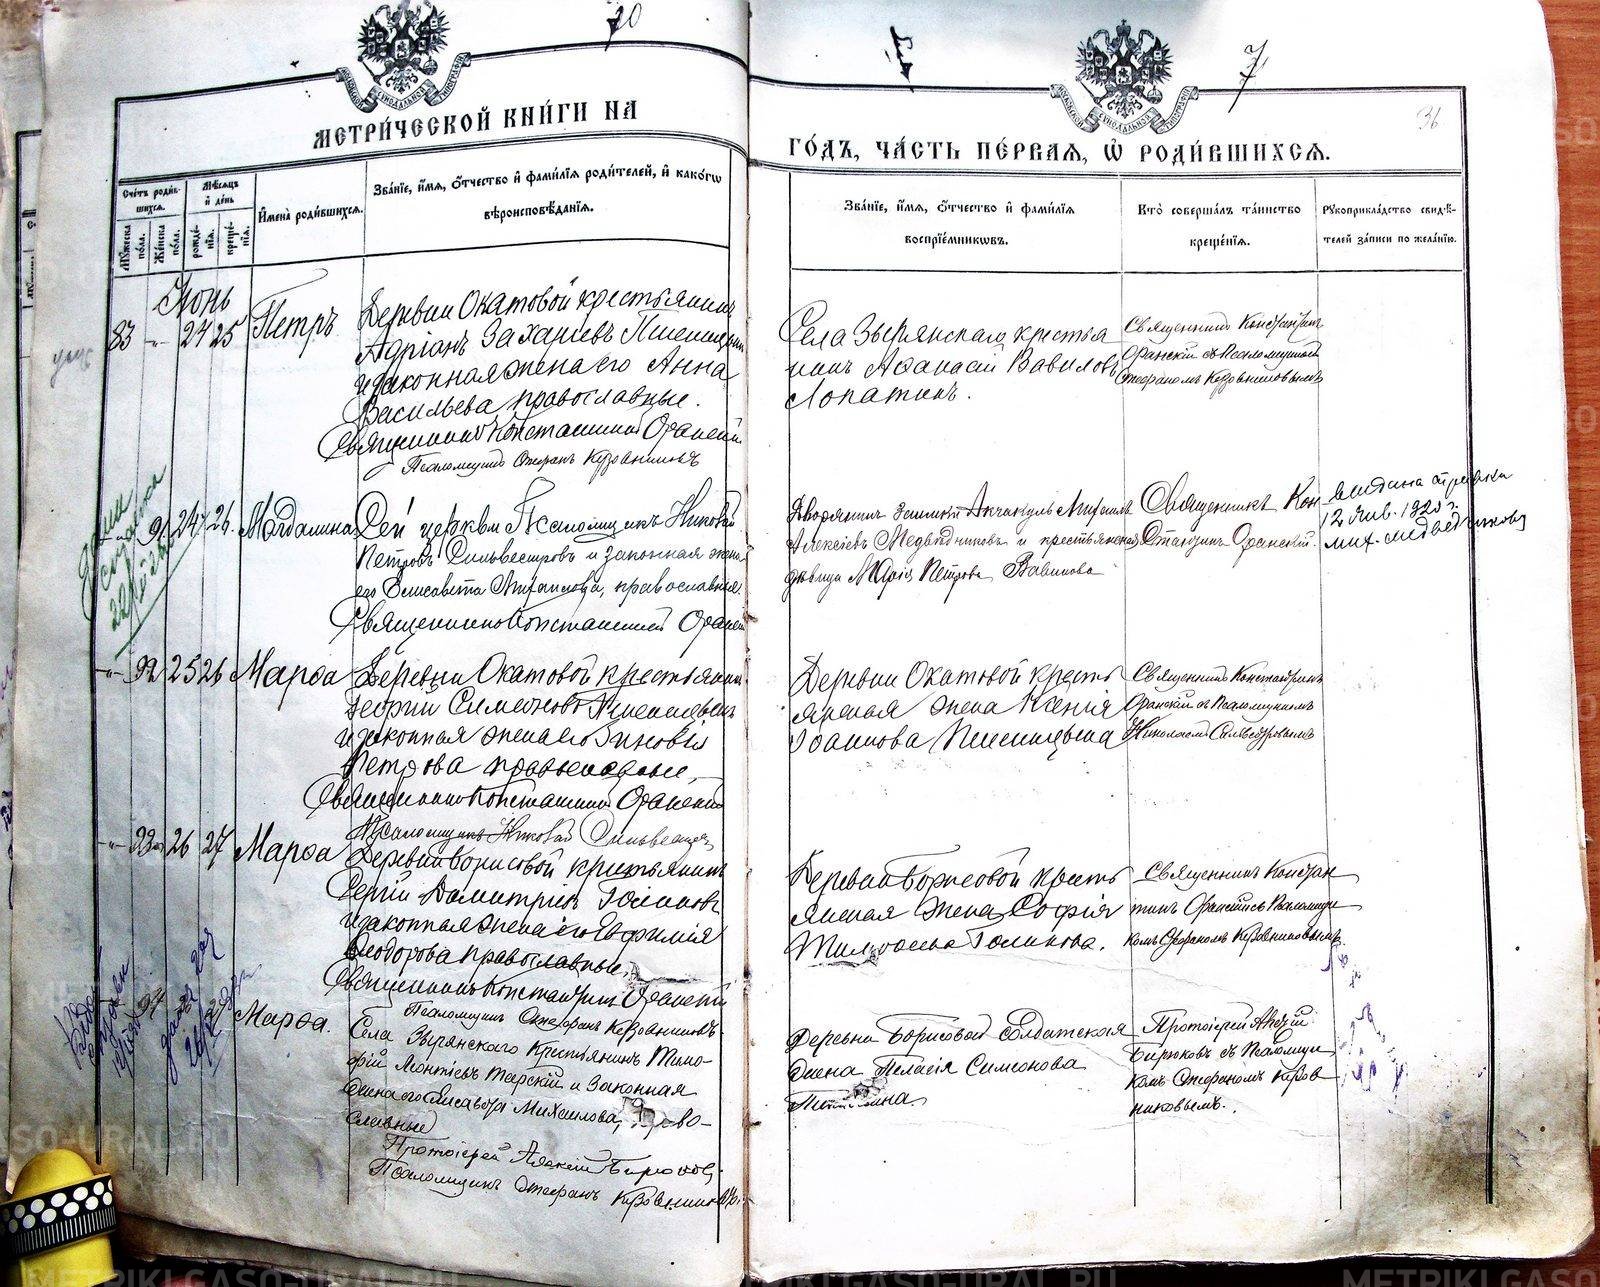 20
7
36
МЕТРИ́ЧЕСКОЙ КНИ́ГИ НА
ГО́ДЪ, ЧА́СТЬ ПЕ́РВАЯ, Ѡ҆ РОДИ́ВШИХСѦ.
Сче́тъ роди́в-
шихсѧ.
Мѣ́сѧцъ
и҆ де́нь
Мꙋ́жеска по́ла.
Же́нска по́ла.
рожде́-
нїѧ.
креще́-
нїѧ.
И҆мена̀ роди́вшихсѧ.
Зва́нїе, и҆́мѧ, ѻ҆́тчество и҆ фами́лїѧ роди́телей, и҆ како́гѡ
вѣроисповѣ́данїѧ.
Зва́нїе, и҆́мѧ, ѻ҆́тчество и҆ фами́лїѧ
воспрїе́мникѡвъ.
Кто̀ соверша́лъ та́инство
креще́нїѧ.
Рꙋкоприкла́дство свидѣ́-
телей за́писи по жела́нїю.
Іюнь
83 -"- 24 25 Петръ
Деревни Окатовой крестьянинъ
Адріанъ Захаріевъ Пшеницынъ
и законная жена его Анна
Васильева, православные.
Священникъ Константинъ Оранскій
Псаломщикъ Стефанъ Кузовниковъ
Села Зырянскаго крестья
нинъ Афанасій Вавиловъ
Лопатинъ.
Священникъ Константинъ
Оранскій съ Псаломщикомъ
Стефаномъ Кузовниковымъ
-"- 91 24 26 Магдалина
Сей церкви Псаломщикъ Николай
Петровъ Сильвестровъ и законная жена
его Елисавета Михаилова, православные.
Священникъ Константинъ Оранскій
Дворянинъ Михаилъ
Алексіевъ Медвѣдниковъ и крестьянская
дѣвица Марія Петрова Вавилова
Священникъ Кон
стантинъ Оранскій.
выдана справка
12 янв. 1925 г.
-"- 92 25 26 Марѳа
Деревни Окатовой крестьянинъ
Георгій Симеоновъ Пшеницынъ
и законная жена его Зиновія
Петрова православные,
Священникъ Константинъ Оранскій
Псаломщикъ Николай Сильвестровъ
Деревни Окатовой кресть
янская жена Ксенія
Іоаннова Пшеницына
Священникъ Константинъ
Оранскій съ Псаломщикомъ
Николаемъ Сильвестровымъ
-"- 93 26 27 Марѳа
Деревни Борисовой крестьянинъ
Сергій Димитріевъ Голиковъ
и законная жена его Евфимія
Ѳеодорова православные,
Священникъ Константинъ Оранскій
Псаломщикъ Стефанъ Кузовниковъ
Деревни Борисовой кресть
янская жена Софія
Голикова.
Священникъ Констан
тинъ Оранскій съ Псаломщи
комъ Стефаномъ Кузовниковымъ.
94 Марѳа.
Села Зырянскаго Крестьянинъ Тимо-
фій Леонтіевъ Тарскій и Законная
жена его Елисавета Михаилова, Право-
славные
Протоіерей Алексій Бирюковъ
Псаломщикъ Стефанъ Кузовниковъ.
Деревни Борисовой солдатская
жена Пелагія Симеонова
Протоіерей Алексій
Бирюковъ съ Псаломщи
комъ Стефаномъ Кузов
никовымъ.
METRIKI.GASO-URAL.RU